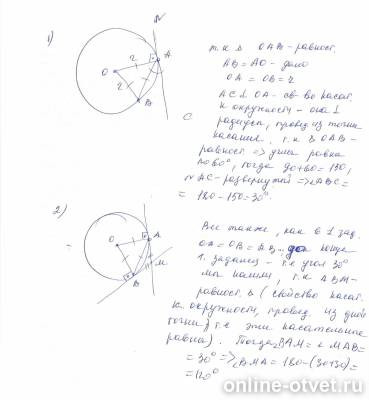 1)
N
A
O
B
2
2
C
т.к Δ OAB - равност.
AB = AO - дано
OA = OB = 2
AC ⊥ OA - св-во касат.
к окружности - она ⊥
радиусу, провед из точки
касания. т.к Δ OAB -
равност. => угла равна
60°, тогда 90+60=150,
NAC - развернутый => ∠ABC =
= 180 - 150 = 30°.
2)
O
A
M
B
Все также, как в 1 зад.
OA = OB = AB
1. задания - т.к угол 30°
мы нашли, т.к ABM -
равност. Δ (свойство касат.
к окружности, провед. из одной
точки) т.к эти касательные
равна). Тогда ∠BAM = ∠MAB =
= 30° => ∠BMA = 180 - (30+30) =
= 120°
online-otvet.ru